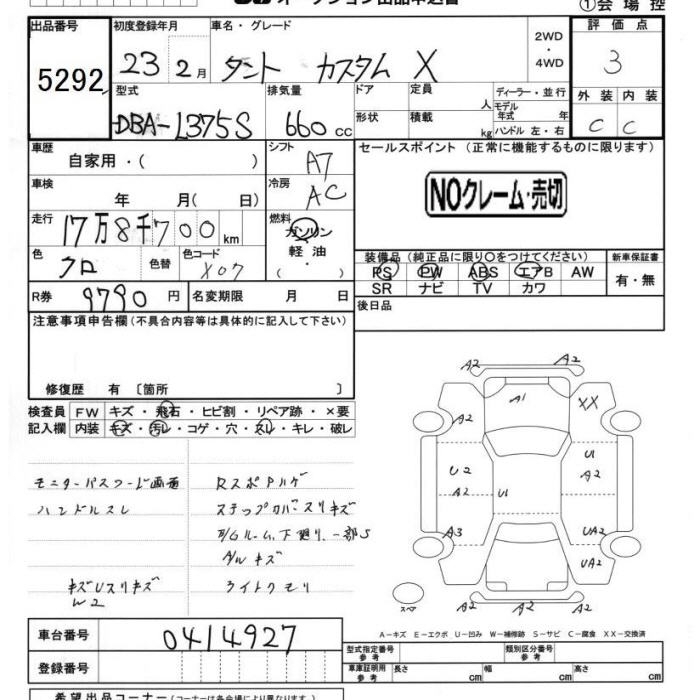 オークション出品申込書
①会場控
出品番号 初度登録年月 車名・グレード 2WD・4WD 評価点
5292 23 2月 タント カスタム X 3
型式 排気量 ドア 定員 人 ディーラー・並行 外装 内装
DBA-L375S 660cc 形状 積載 kg モデル年式 年 ハンドル 左・右 C C
車歴 自家用・( ) シフト A7 セールスポイント (正常に機能するものに限ります)
車検 年 月( 日) 冷房 AC
NOクレーム・売切
走行 17万8千700km 燃料 ガソリン 軽油 ・( )
色 クロ 色替 色コード X07
装備品(純正品に限り○をつけてください) 新車保証書
PS PW ABS エアB AW 有・無
SR ナビ TV カワ
R券 9790円 名変期限 月 日
後日品
注意事項申告欄(不具合内容等は具体的に記入して下さい)
修復歴 有 〔箇所 〕
検査員 FW キズ・飛石・ヒビ割・リペア跡・×要
記入欄 内装 キズ・汚レ・コゲ・穴・スレ・キレ・破レ
モニターパスワード画面
ハンドルスレ
キズUスリキズ
W2
Rスポアハゲ
ステップカバースリキズ
E/Gルーム、下廻り、一部S
A/Wキズ
ライトクモリ
A2 A2
A1
A2 XX
U2 A2 U1 U1 A2
A3 UA2
UA2
A2 A2 A2
スペア
A-キズ E-エクボ U-凹み W-補修跡 S-サビ C-腐食 XX-交換済
車台番号 0414927
登録番号
型式指定番号 参考 類別区分番号 参考
車庫証明用 参考 長さ cm 幅 cm 高さ cm
希望出品コーナー(コーナーは各会場により異なります)